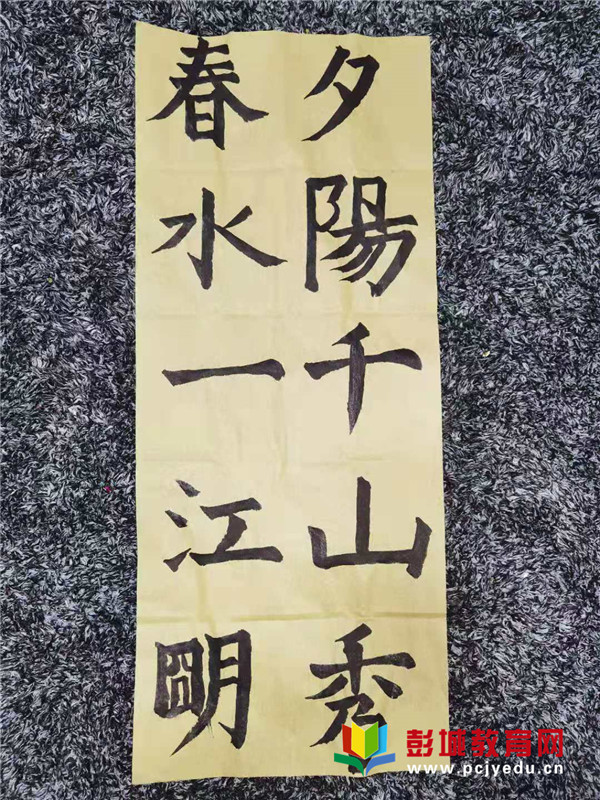 夕陽千山秀
春水一江朙
彭城教育网
www.pcjyedu.cn